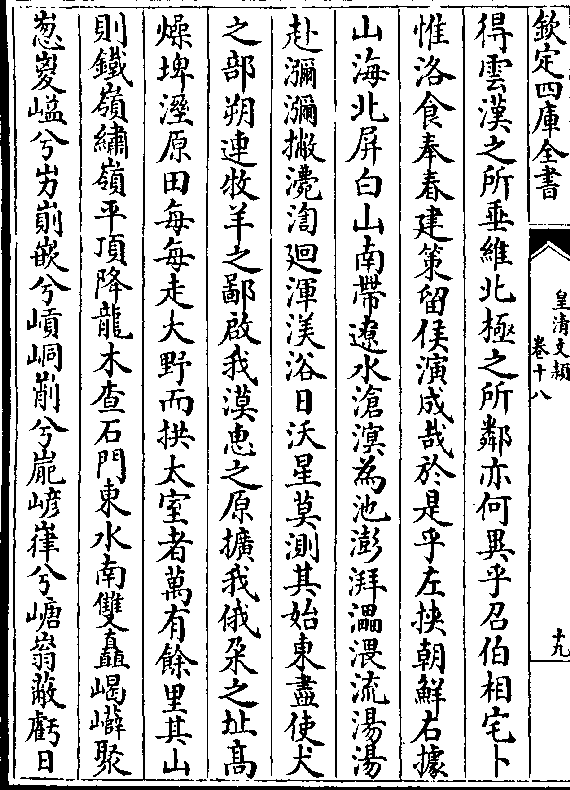 欽定四庫全書
皇清文穎
卷十八
十九
得雲漢之所垂維北極之所鄰亦何異乎召伯相宅卜
惟洛食奉春建策留侯演成哉於是乎左挾朝鮮右據
山海北屏白山南帶遼水滄溟為池澎湃漫溰流湯湯
赴瀰瀰撇灇淘廻渾渼浴日沃星莫測其始東盡使犬
之部朔連牧羊之鄙啟我漠惠之原擴我俄朶之址高
燥埤溼原田每每走大野而拱太室者萬有餘里其山
則鐵嶺繡嶺平頂降龍木查石門東水南雙矗嵑㠔聚
嵏嵱兮屴崱嵌兮嵿峒崱兮巃㟧嵂兮嵣嵡蔽虧日